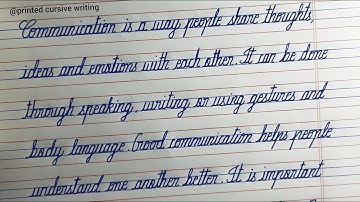 @printed cursive writing
Communication is a way people share thoughts,
ideas and emotions with each other. It can be done
through speaking, writing or using gestures and
body language. Good communication helps people
understand one another better. It is important